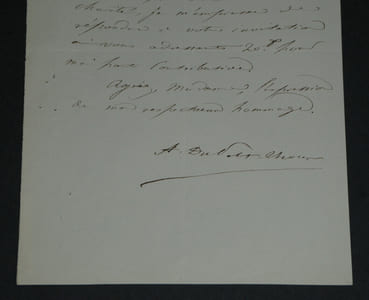 charité, je m'empresse de
répondre à votre invitation
en vous adressant 20f pour
ma contribution
Agréez, Madame, l'expression
de mes respectueux hommages.
A.